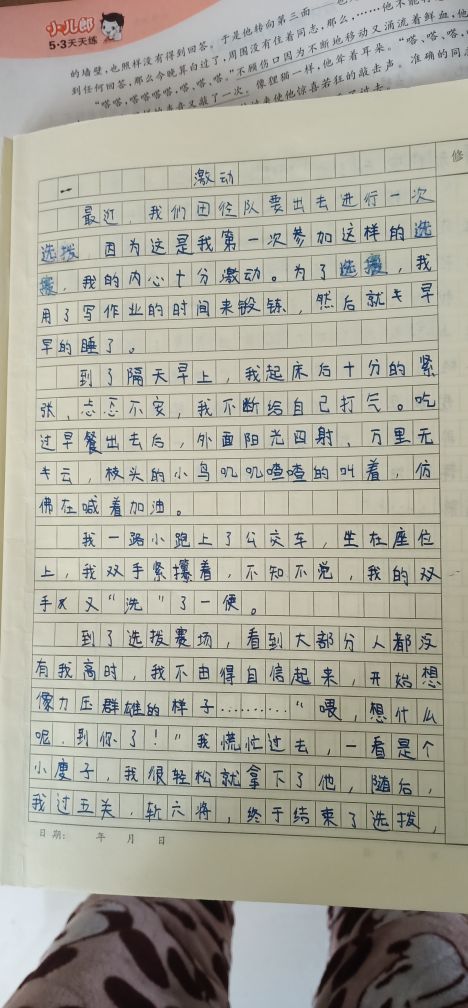 小儿郎
5·3天天练
的墙壁，也照样没有得到回答。于是他转向第三面
到任何回答，那么今晚算白过了，周围没有住着同志，那么，……他不能
“嗒嗒，嗒嗒嗒嗒，嗒，嗒，嗒。”不顾伤口因为不断地移动又涌流着鲜血，他
又敲了一次。像狸猫一样，他耸着耳朵。“嗒、嗒、嗒，
使他惊喜若狂的敲击声。准确的同志
修
激动
最近，我们田径队要出去进行一次
选拨，因为这是我第一次参加这样的选
拨，我的内心十分激动。为了选拨，我
用了写作业的时间来锻炼，然后就早
早的睡了。
到了隔天早上，我起床后十分的紧
张、忐忑不安，我不断给自己打气。吃
过早餐出去后，外面阳光四射、万里无
云，枝头的小鸟叽叽喳喳的叫着，仿
佛在喊着加油。
我一路小跑上了公交车，坐在座位
上，我双手紧攥着，不知不觉，我的双
手又“洗”了一便。
到了选拨赛场，看到大部分人都没
有我高时，我不由得自信起来，开始想
像力压群雄的样子………“喂，想什么
呢，到你了！”我慌忙过去，一看是个
小廋子，我很轻松就拿下了他，随后，
我过五关，斩六将，终于结束了选拨，
日期： 年 月 日